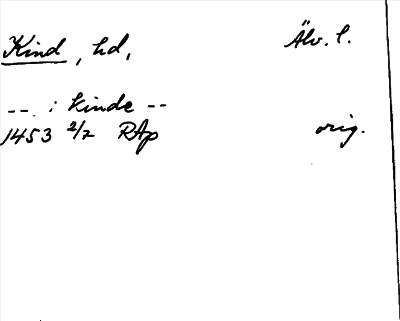 Kind, hd, Älv. l.
-- . i kinde --
1453 2/7 RAp orig.